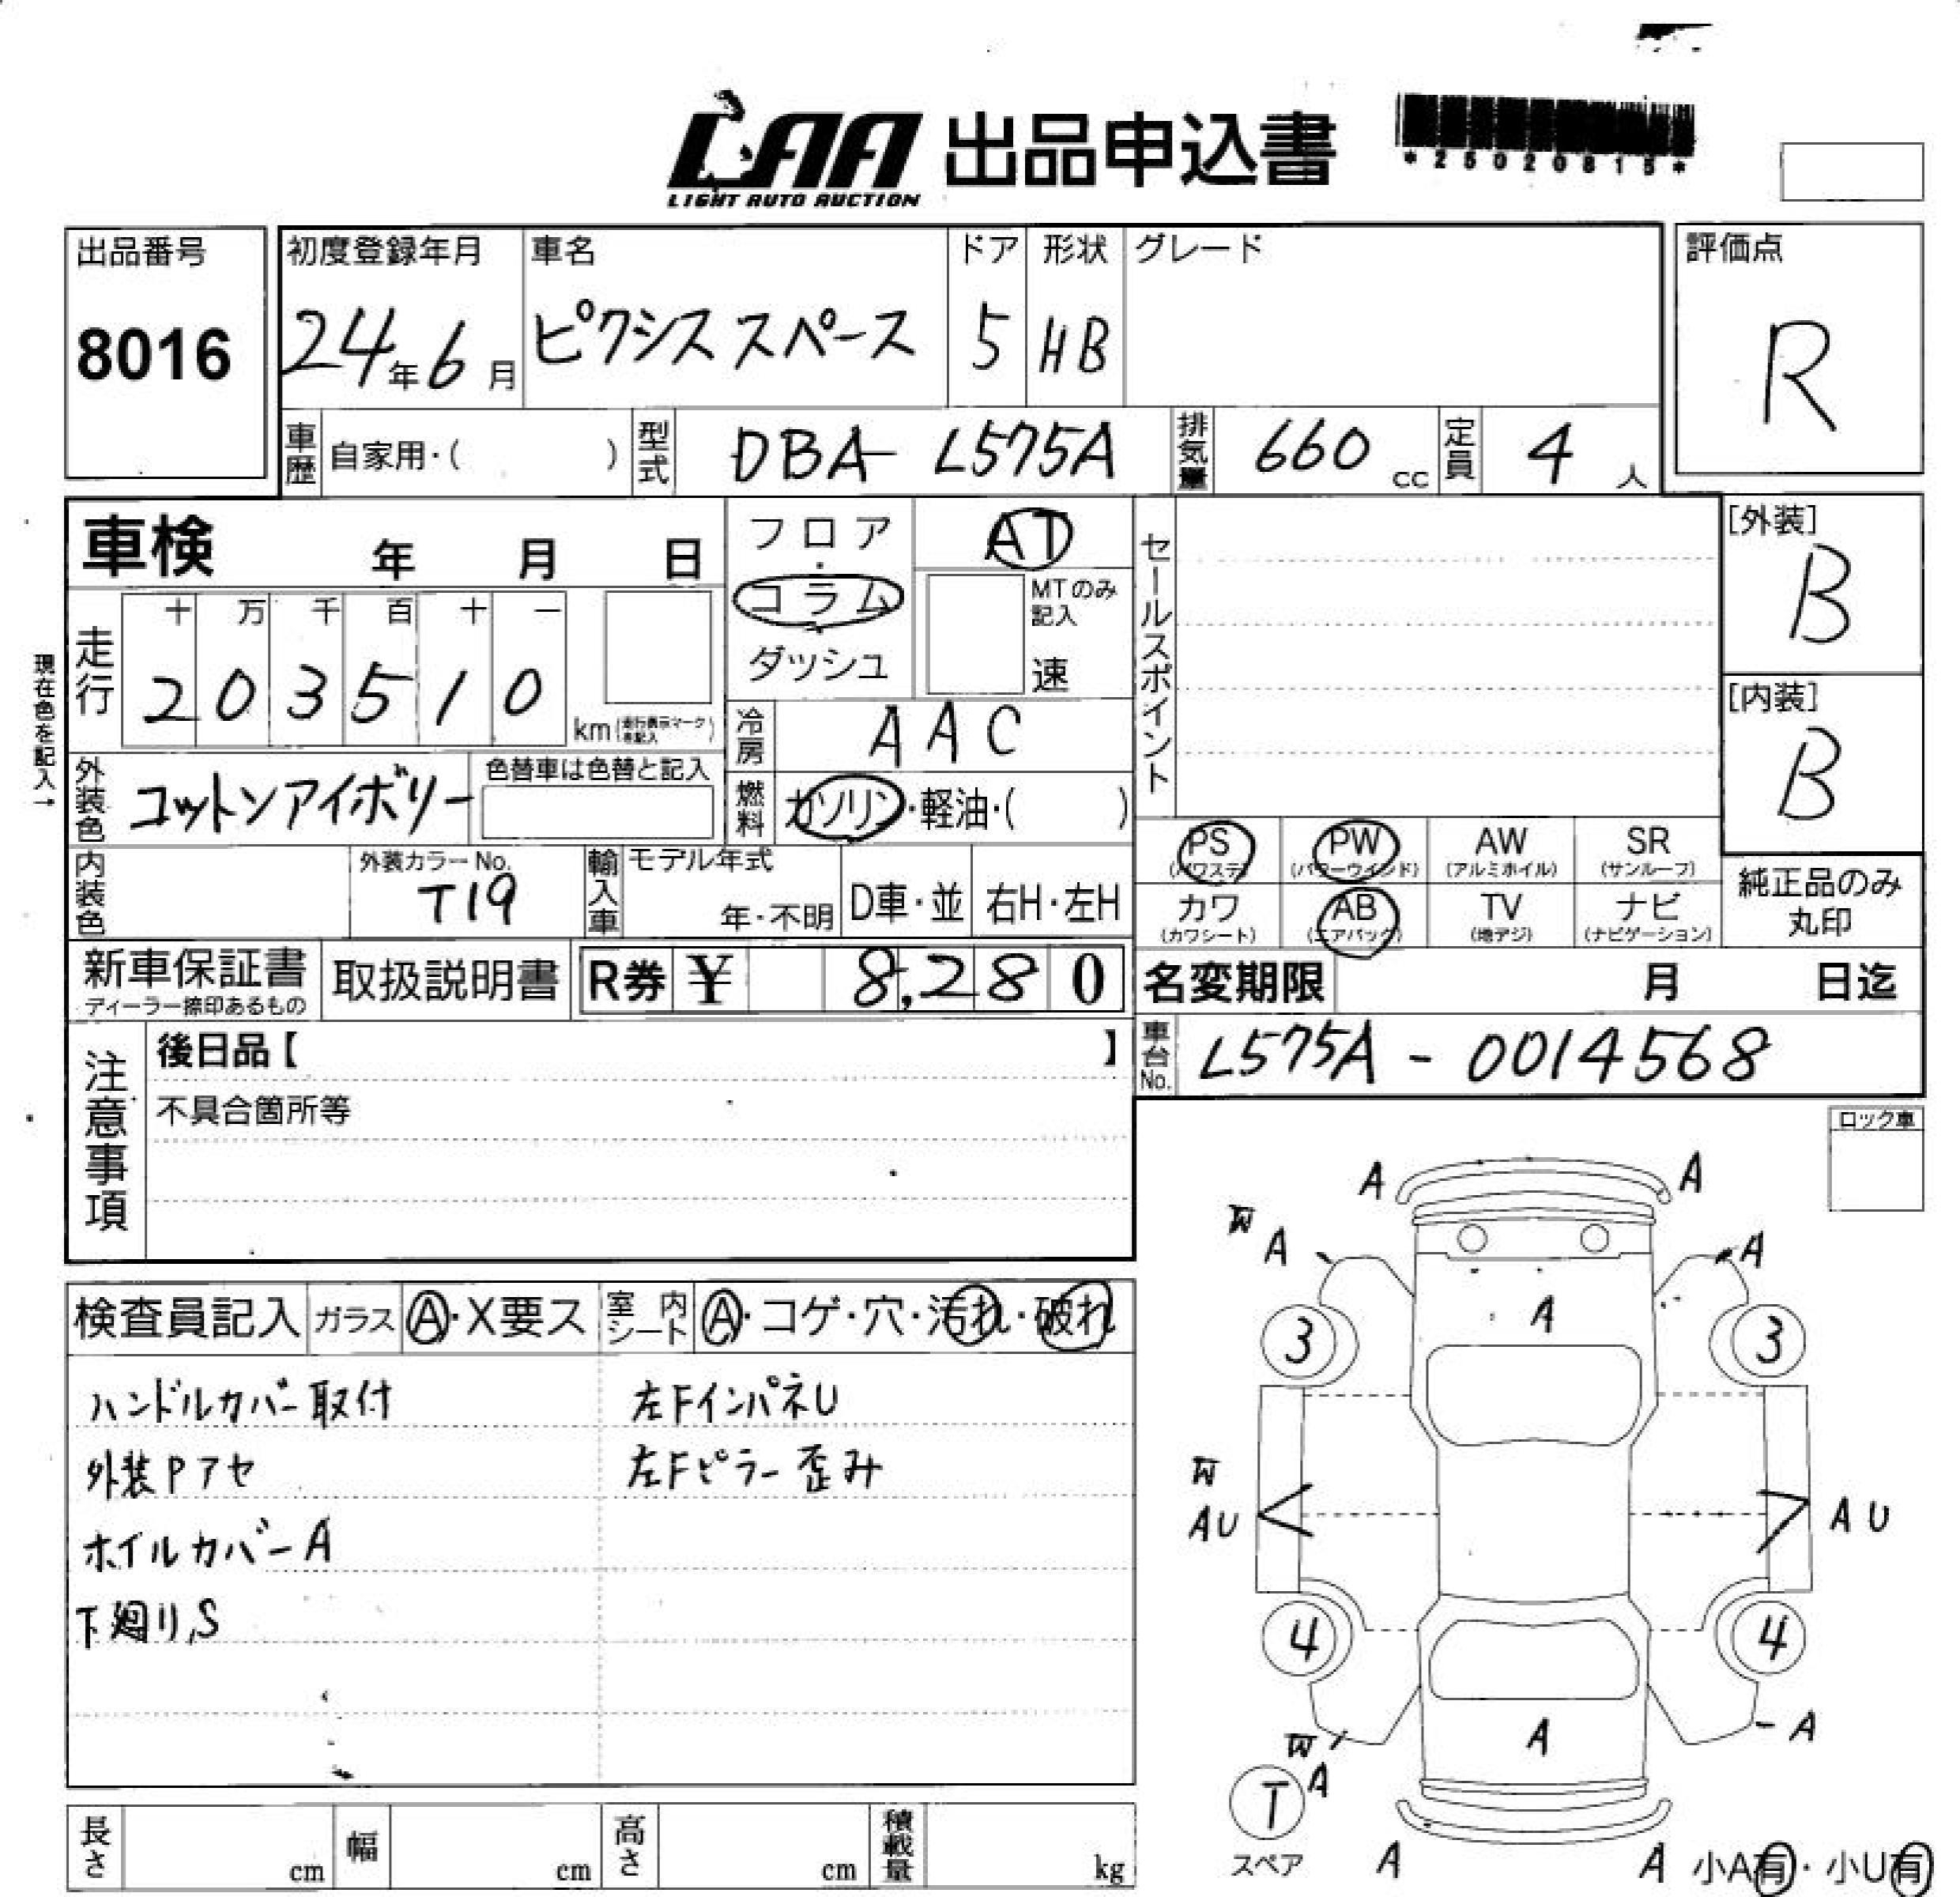 LAA 出品申込書
LIGHT AUTO AUCTION
*25020815*
出品番号 初度登録年月 車名 ドア 形状 グレード 評価点
8016 24年6月 ピクシススペース 5 HB R
車歴 自家用・( ) 型式 DBA-L575A 排気量 660 cc 定員 4 人
車検 年 月 日
フロア・コラム・ダッシュ
AT
MTのみ記入
速
セールスポイント
[外装]
B
[内装]
B
現在色を記入→
走行 十 万 千 百 十 一
2 0 3 5 1 0 km(走行表示マークを記入)
冷房 AAC
外装色 コットンアイボリー 色替車は色替と記入
燃料 ガソリン・軽油・( )
内装色 外装カラーNo. T19
輸入車 モデル年式 年・不明 D車・並 右H・左H
PS (パワステ) PW (パワーウインド) AW (アルミホイル) SR (サンルーフ)
カワ (カワシート) AB (エアバック) TV (地デジ) ナビ (ナビゲーション)
純正品のみ
丸印
新車保証書 取扱説明書 R券 ¥ 8,280
ディーラー捺印あるもの
名変期限 月 日迄
車台No. L575A-0014568
注意事項
後日品【 】
不具合箇所等
ロック車
検査員記入 ガラス A・X要ス 室内シート A・コゲ・穴・汚れ・破れ
ハンドルカバー取付 左FインパネU
外装Pアセ 左Fピラー歪み
ホイルカバーA
下廻り,S
A A
W
A A
A
3 3
W
AU AU
4 4
A
W A
A
T
スペア
A A 小A有・小U有
長さ cm 幅 cm 高さ cm 積載量 kg